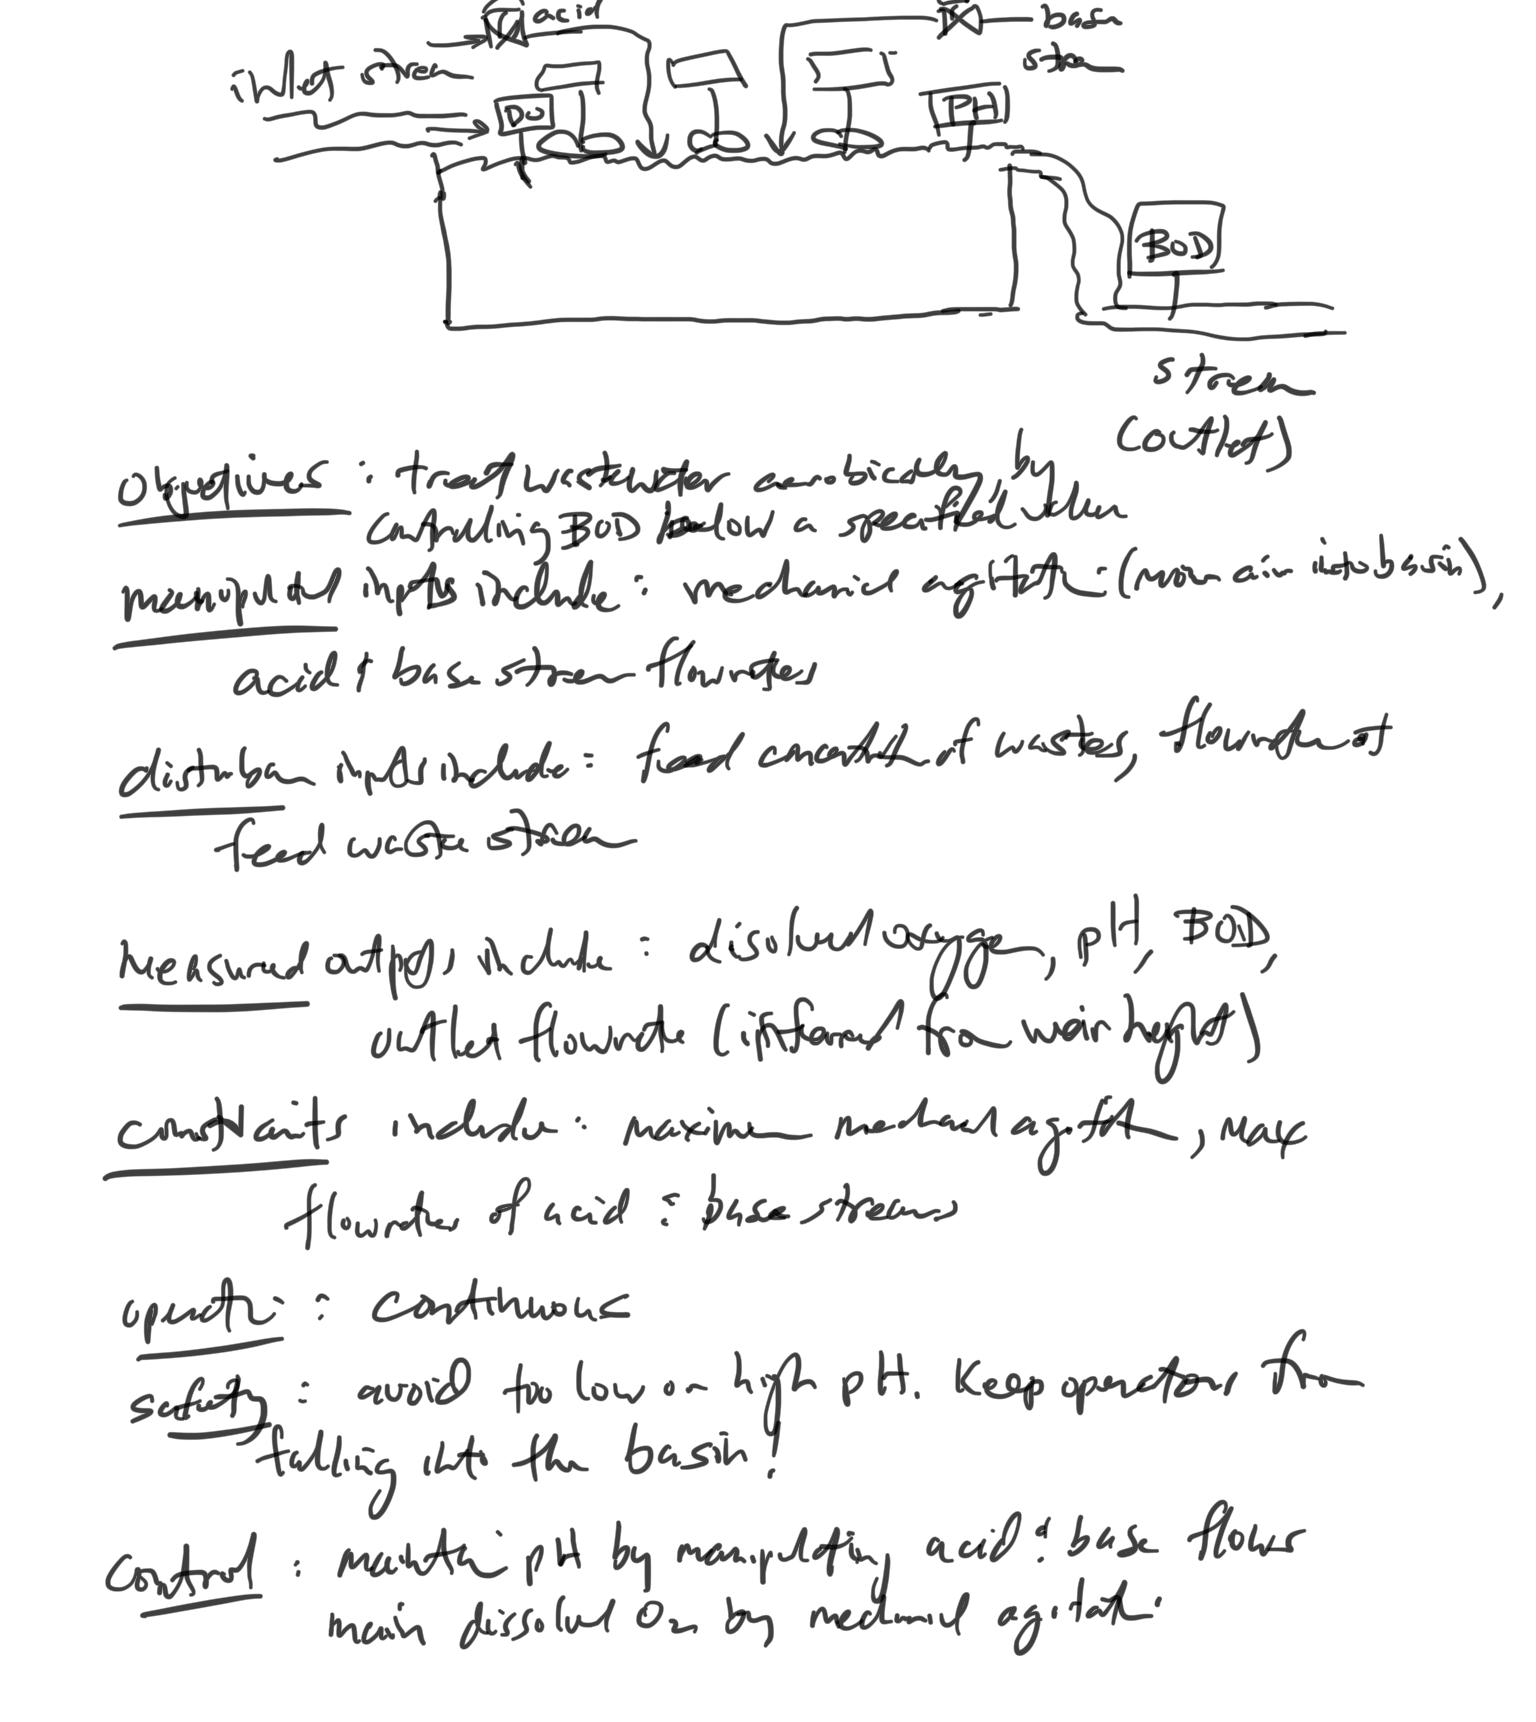 acid
base
stream
inlet stream
DO
PH
BOD
stream
(outlet)
Objectives : treat wastewater aerobically, by
controlling BOD below a specified value
manipulated inputs include : mechanical agitation (more air into basin),
acid & base stream flowrates
disturbance inputs include : feed concentration of wastes, flowrate of
feed waste stream
Measured outputs include : disolved oxygen, pH, BOD,
outlet flowrate (inferred from weir height)
constraints include : maximum mechanical agitation, max
flowrates of acid & base streams
operation : continuous
safety : avoid too low or high pH. Keep operators from
falling into the basin!
Control : maintain pH by manipulating acid & base flows
main dissolved O2 by mechanical agitation